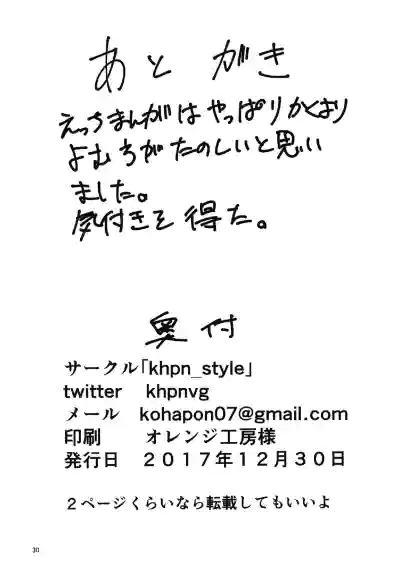 あとがき
えっちまんがは やっぱりかくより
よむちがたのしいと思い
ました。
気付きを得た。
奥付
サークル「khpn_style」
twitter khpnvg
メール kohapon07@gmail.com
印刷 オレンジ工房様
発行日 2017年12月30日
2ページくらいなら転載してもいいよ
30